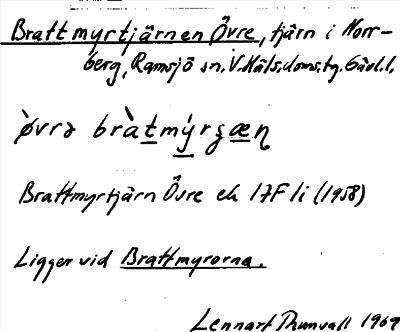 Brattmyrtjärnen Övre, tjärn i Norr-
berg, Ramsjö sn. V. Häls. doms. tg. Gävl. l.
ø̀vrə bràtmýrʂæn̥
Brattmyrtjärn Övre ek 17F 1i (1958)
Ligger vid Brattmyrorna.
Lennart Thunvall 1969